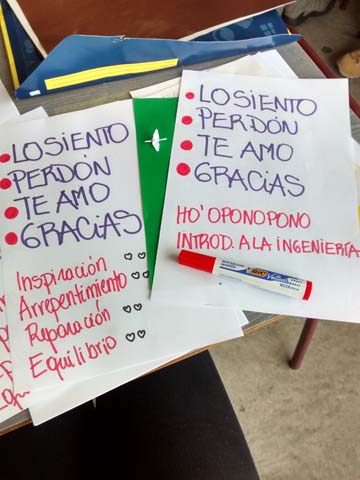 LO SIENTO
PERDÓN
TE AMO
GRACIAS
Inspiración
Arrepentimiento
Reparación
Equilibrio
LO SIENTO
PERDÓN
TE AMO
GRACIAS
HO'OPONOPONO
INTROD. A LA INGENIERÍA
BIC Velleda